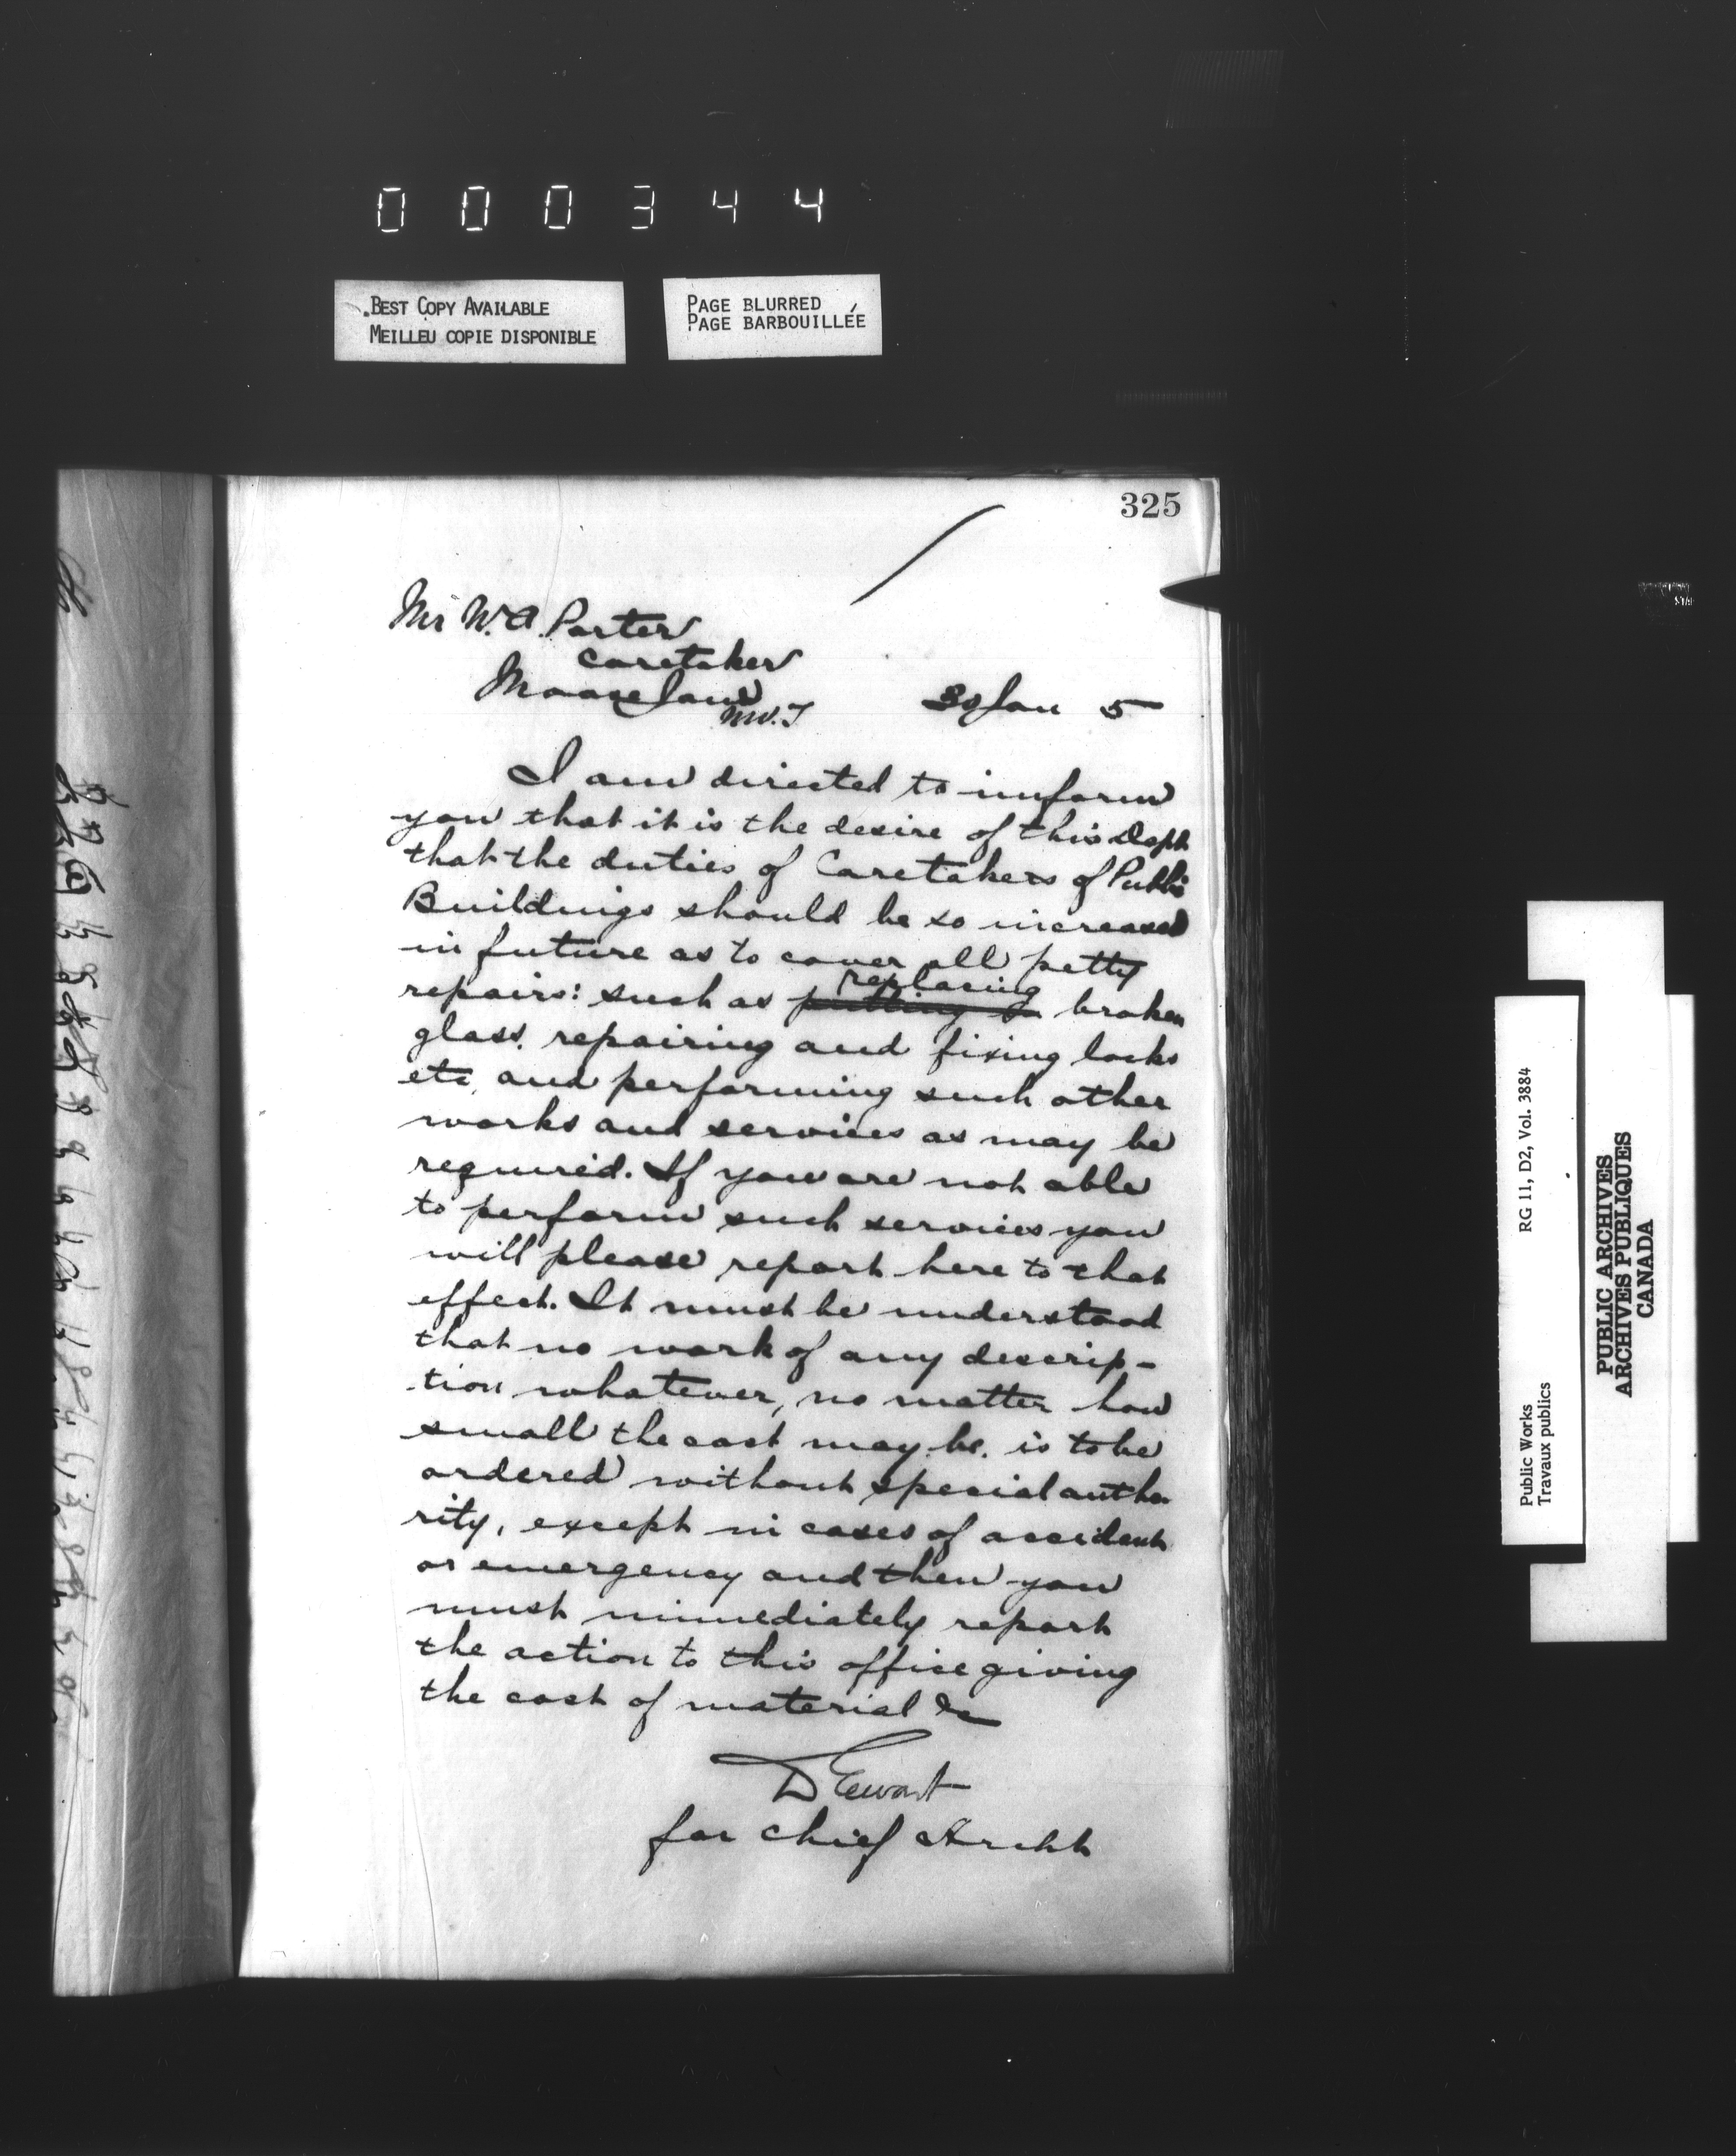 000344
BEST COPY AVAILABLE
MEILLEU COPIE DISPONIBLE
PAGE BLURRED
PAGE BARBOUILLÉE
325
Mr W. A. Porter
Caretaker
Moose Jaw
N.W.T
30 Jan 5
I am directed to inform
you that it is the desire of this Dept
that the duties of Caretakers of Public
Buildings should be so increased
in future as to cover all petty
replacing
repairs: such as putting in broken
glass, repairing and fixing locks
etc, and performing such other
works and services as may be
required. If you are not able
to perform such services you
will please report here to that
effect. It must be understood
that no work of any descrip-
tion whatever, no matter how
small the cost may be, is to be
ordered without special autho
rity, except in cases of accident
or emergency and then you
must immediately report
the action to this office giving
the cost of material &c
D Ewart
for Chief Archt
Public Works
Travaux publics
RG 11, D2, Vol. 3884
PUBLIC ARCHIVES
ARCHIVES PUBLIQUES
CANADA